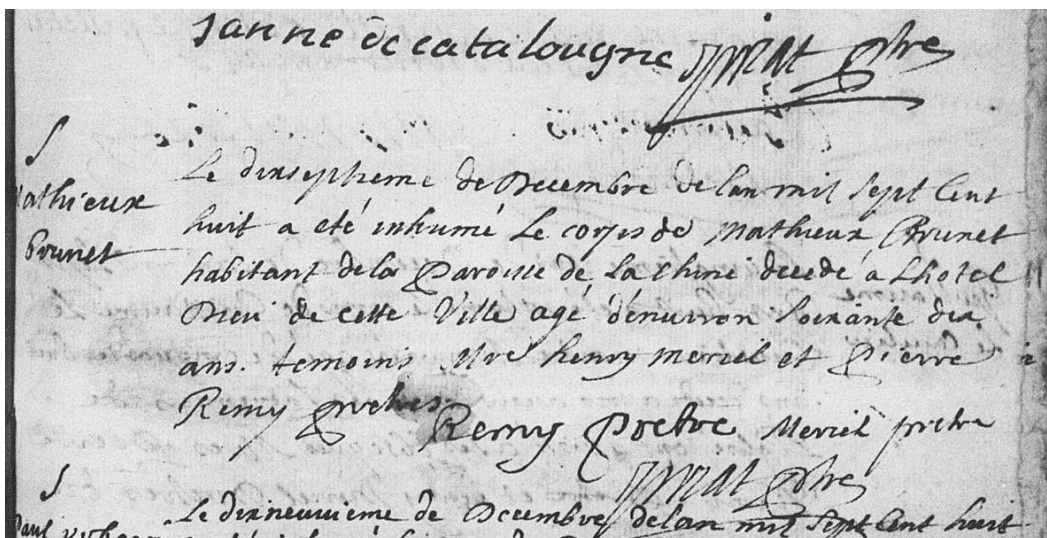 Janne de catalougne Priat ptre
S
Mathieux
Brunet
Le dixseptieme de Decembre de lan mil sept cent
huit a eté inhumé Le corps de Mathieux Brunet
habitant de la Paroisse de la chine decedé a Lhotel
Dieu de cette Ville agé d'enuiron soixante dix
ans. temoins Mre henry meriel et Pierre
Remy prêtres
Remy prêtre Meriel prêtre
Priat ptre
S
Le dixneuuieme de Decembre delan mil sept cent huit
Paul